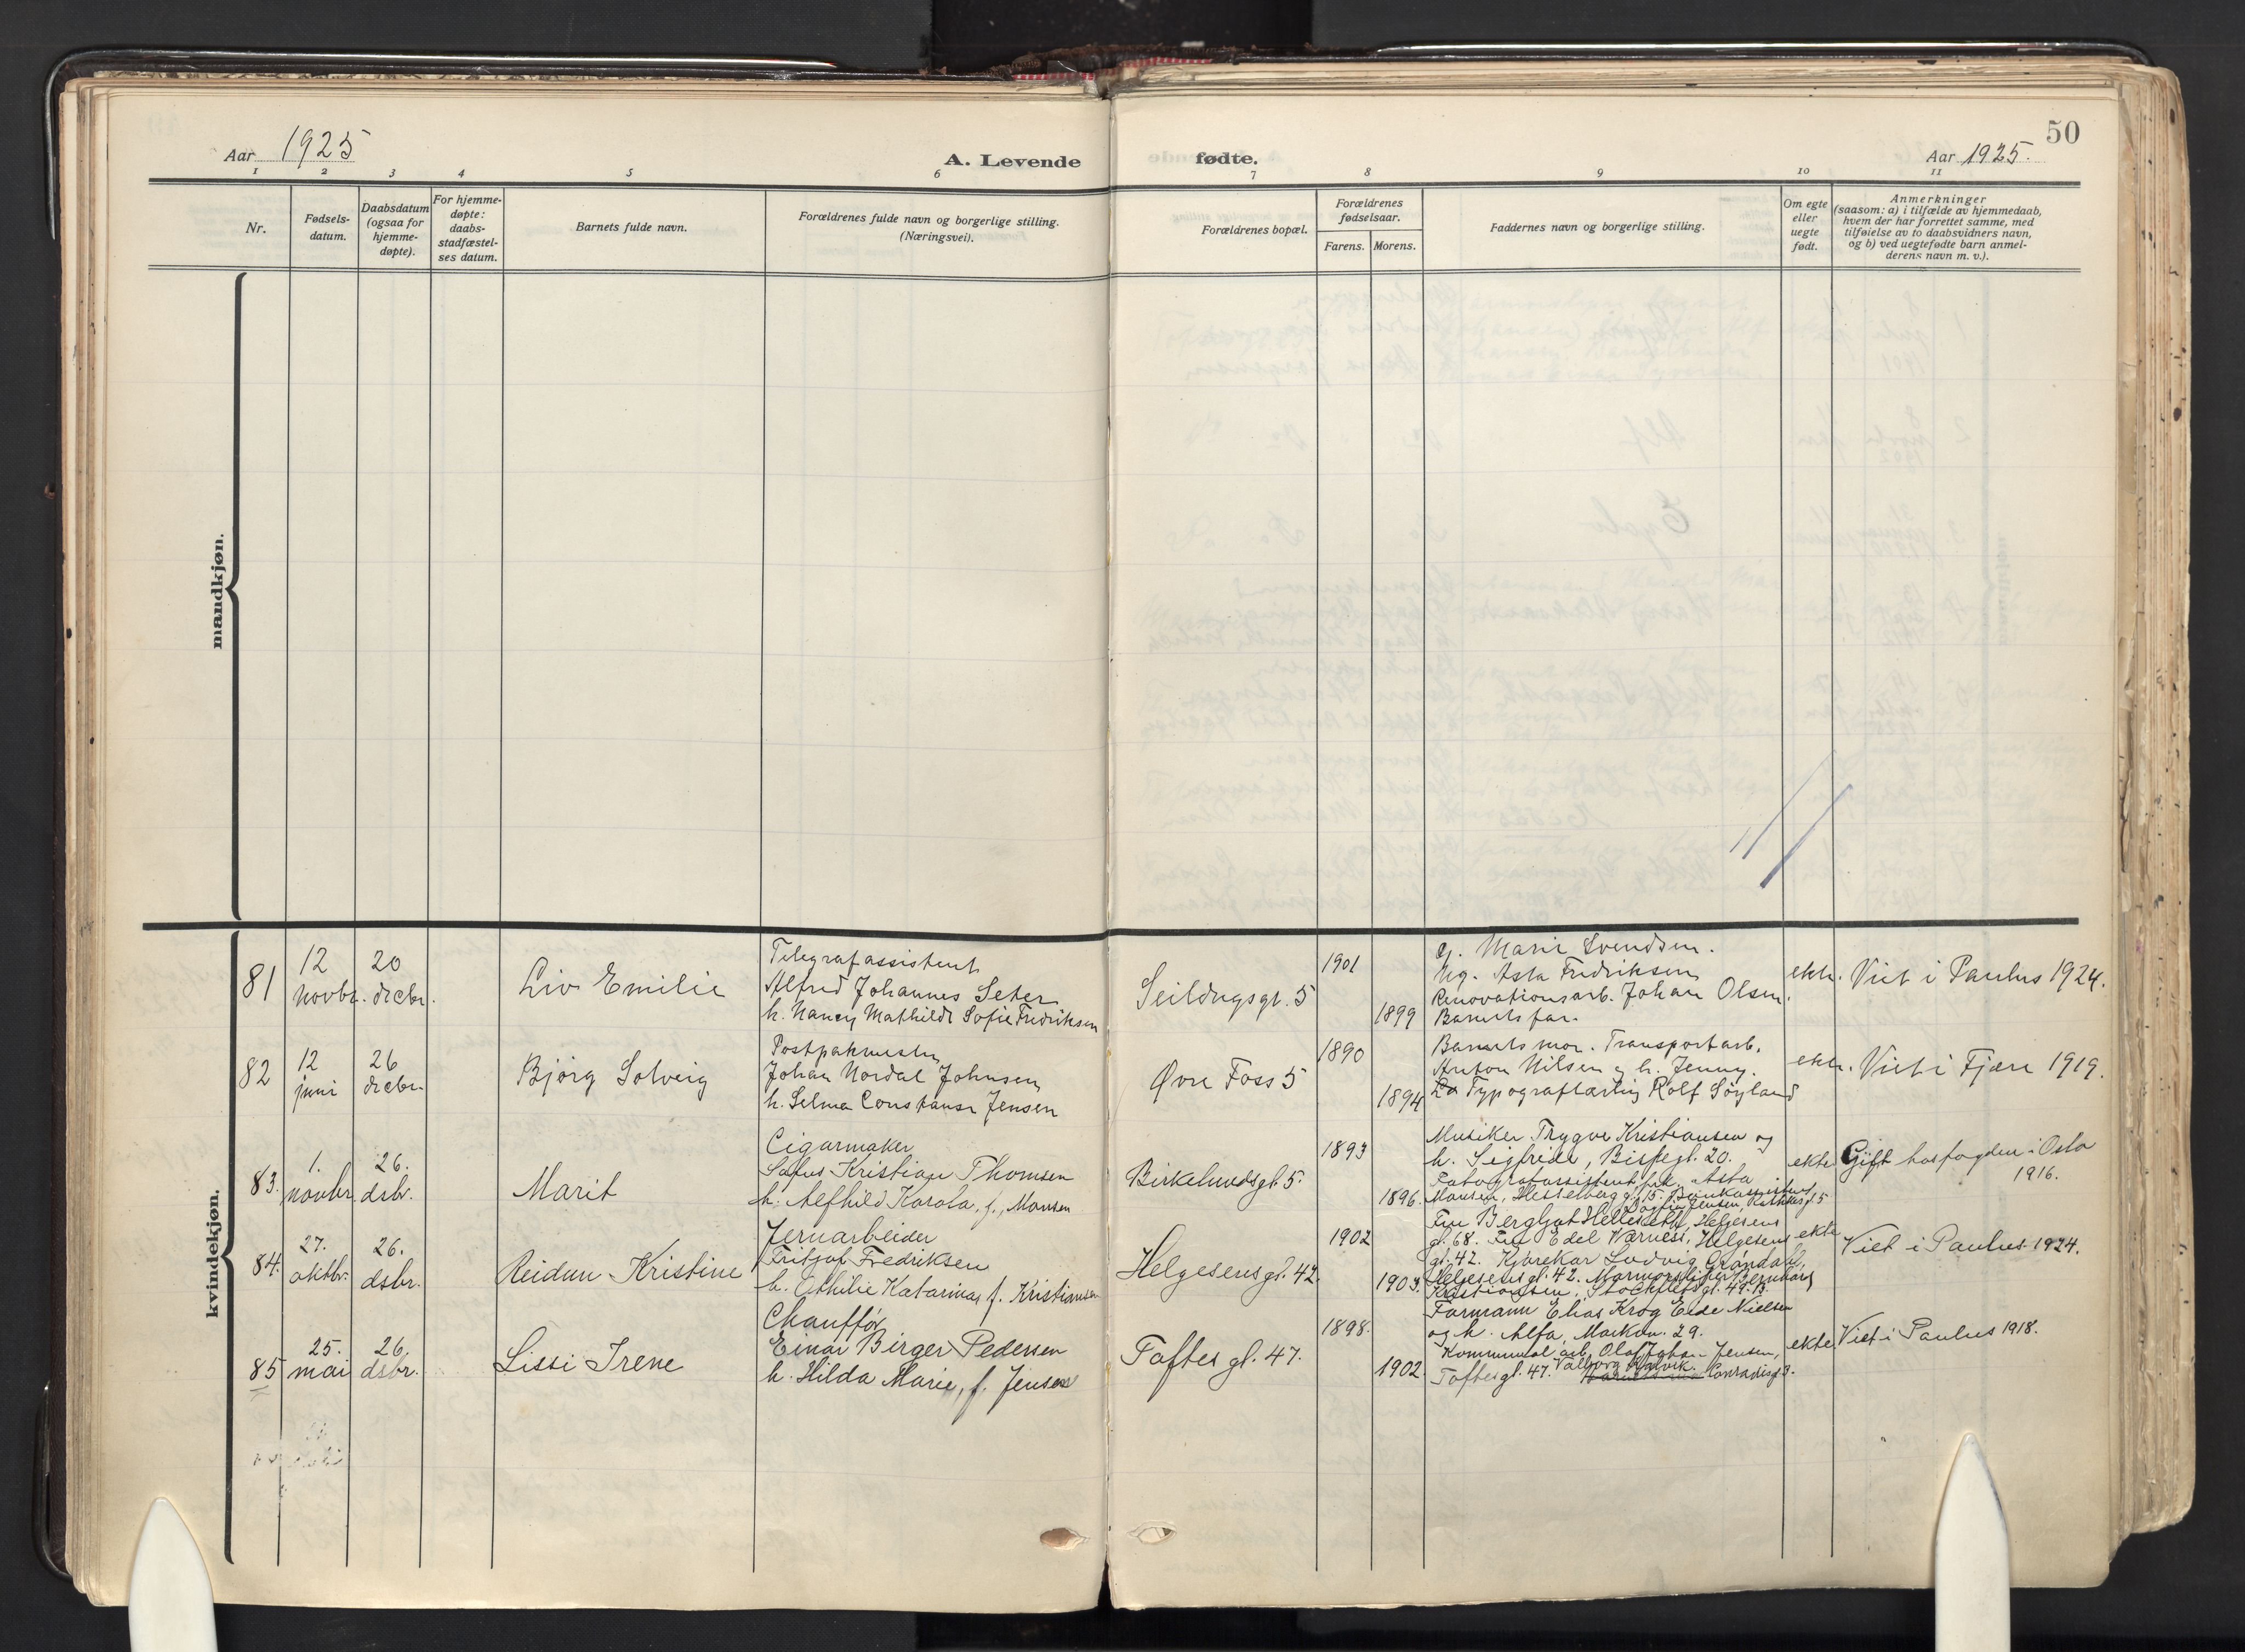 50
Aar 1925
A. Levende
fødte.
Aar 1925.
1 2 3 4 5 6 7 8 9 10 11
Nr.
Fødsels-
datum.
Daabsdatum
(ogsaa for
hjemme-
døpte).
For hjemme-
døpte:
daabs-
stadfæstel-
ses datum.
Barnets fulde navn.
Forældrenes fulde navn og borgerlige stilling.
(Næringsvei).
Forældrenes bopæl.
Forældrenes
fødselsaar.
Farens. Morens.
Faddernes navn og borgerlige stilling.
Om egte
eller
uegte
født.
Anmerkninger
(saasom: a) i tilfælde av hjemmedaab,
hvem der har forrettet samme, med
tilføielse av to daabsvidners navn,
og b) ved uegtefødte barn anmel-
derens navn m. v.).
mandkjøn.
kvindekjøn.
81
12
novbr.
20
decbr.
Liv Emilie
Telegrafassistent
Alfred Johannes Seter
h. Nancy Mathilde Sofie Fredriksen
Seildugsgt. 5
1901
1899
Marie Svendsen.
Ug. Asta Fredriksen
Renovationsarb. Johan Olsen.
Barnets far.
ekte.
Viet i Paulus 1924.
82
12
juni
26
decbr.
Bjørg Solveig
Johan Nordal Johnsen
h. Selma Constanse Jensen
Øvre Foss 5
1890
1894
Barnets mor. Transportarb.
Anton Nilsen og h. Jenny.
Typograflærling Rolf Söyland
ekte.
Viet i Fjære 1919.
83.
1.
novbr.
26.
dsbr.
Marit
Cigarmaker
Kristian Thomsen
h. Alfhild Karola, f. Monsen
Birkelundsgt. 5.
1893
1896.
Musiker Trygve Kristiansen og
h. Sigfride, Bispegt. 20.
Fotografassistent frk. Asta
Monsen, Hesselberggt. 15. Bankassistent
Jensen,
ekte
Gift hos fogden i Oslo
1916.
84.
27.
oktbr.
26.
dsbr.
Reidun Kristine
Jernarbeider
Fritjof Fredriksen
h. Othilie Katarina, f. Kristiansen
Helgesensgt. 42.
1902
1903.
Fru Bergljot Helleseth, Helgesens
gt. 68. Fru Edel Værness, Helgesens
gt. 42. Kjørekar Ludvig Gröndahl,
Helgesensgt. 42. Marmorsliper Bernhard
Kristiansen, Stockfletsgt. 49. B.
ekte
Viet i Paulus 1924.
85
25.
mai
26.
dsbr.
Lissi Irene
Chauffør
Einar Birger Pedersen
h. Hilda Marie, f. Jensen
Toftes gt. 47.
1898.
1902.
Formann Elias Krog Eide Nielsen
og h. Alfa, Markvn. 29.
Kommunal arb. Olaf Johan Jensen,
Toftesgt. 47. Valborg Conradisgt. 3.
ekte
Viet i Paulus 1918.